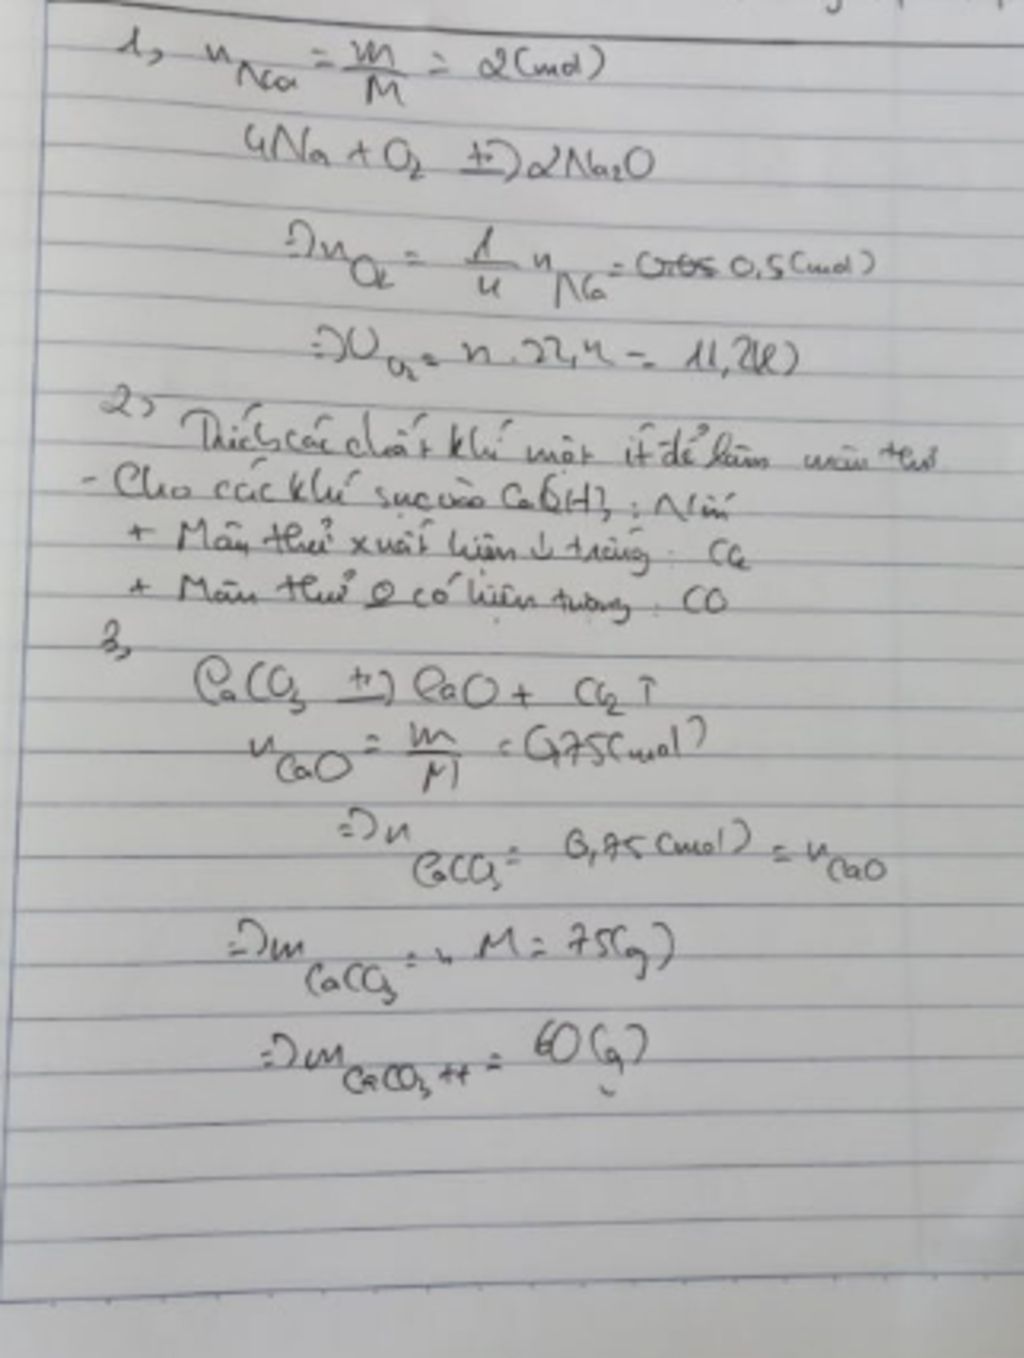 1, n Na = m/M = 2 (mol)
4Na + O2 t°→ 2Na2O
=> nO2 = 1/4 nNa = 0,5 (mol)
=> VO2 = n.22,4 = 11,2(l)
2) Trích các chất khí một ít để làm mẫu thử
- Cho các khí sục vào Ca(OH)2 : Nếu
+ Mẫu thử xuất hiện ↓ trắng : CO2
+ Mẫu thử 0 có hiện tượng : CO
3,
CaCO3 t°→ CaO + CO2 ↑
nCaO = m/M = 0,75 (mol)
=> nCaCO3 = 0,75 (mol) = nCaO
=> mCaCO3 = n.M = 75(g)
=> mCaCO3 tt = 60 (g)